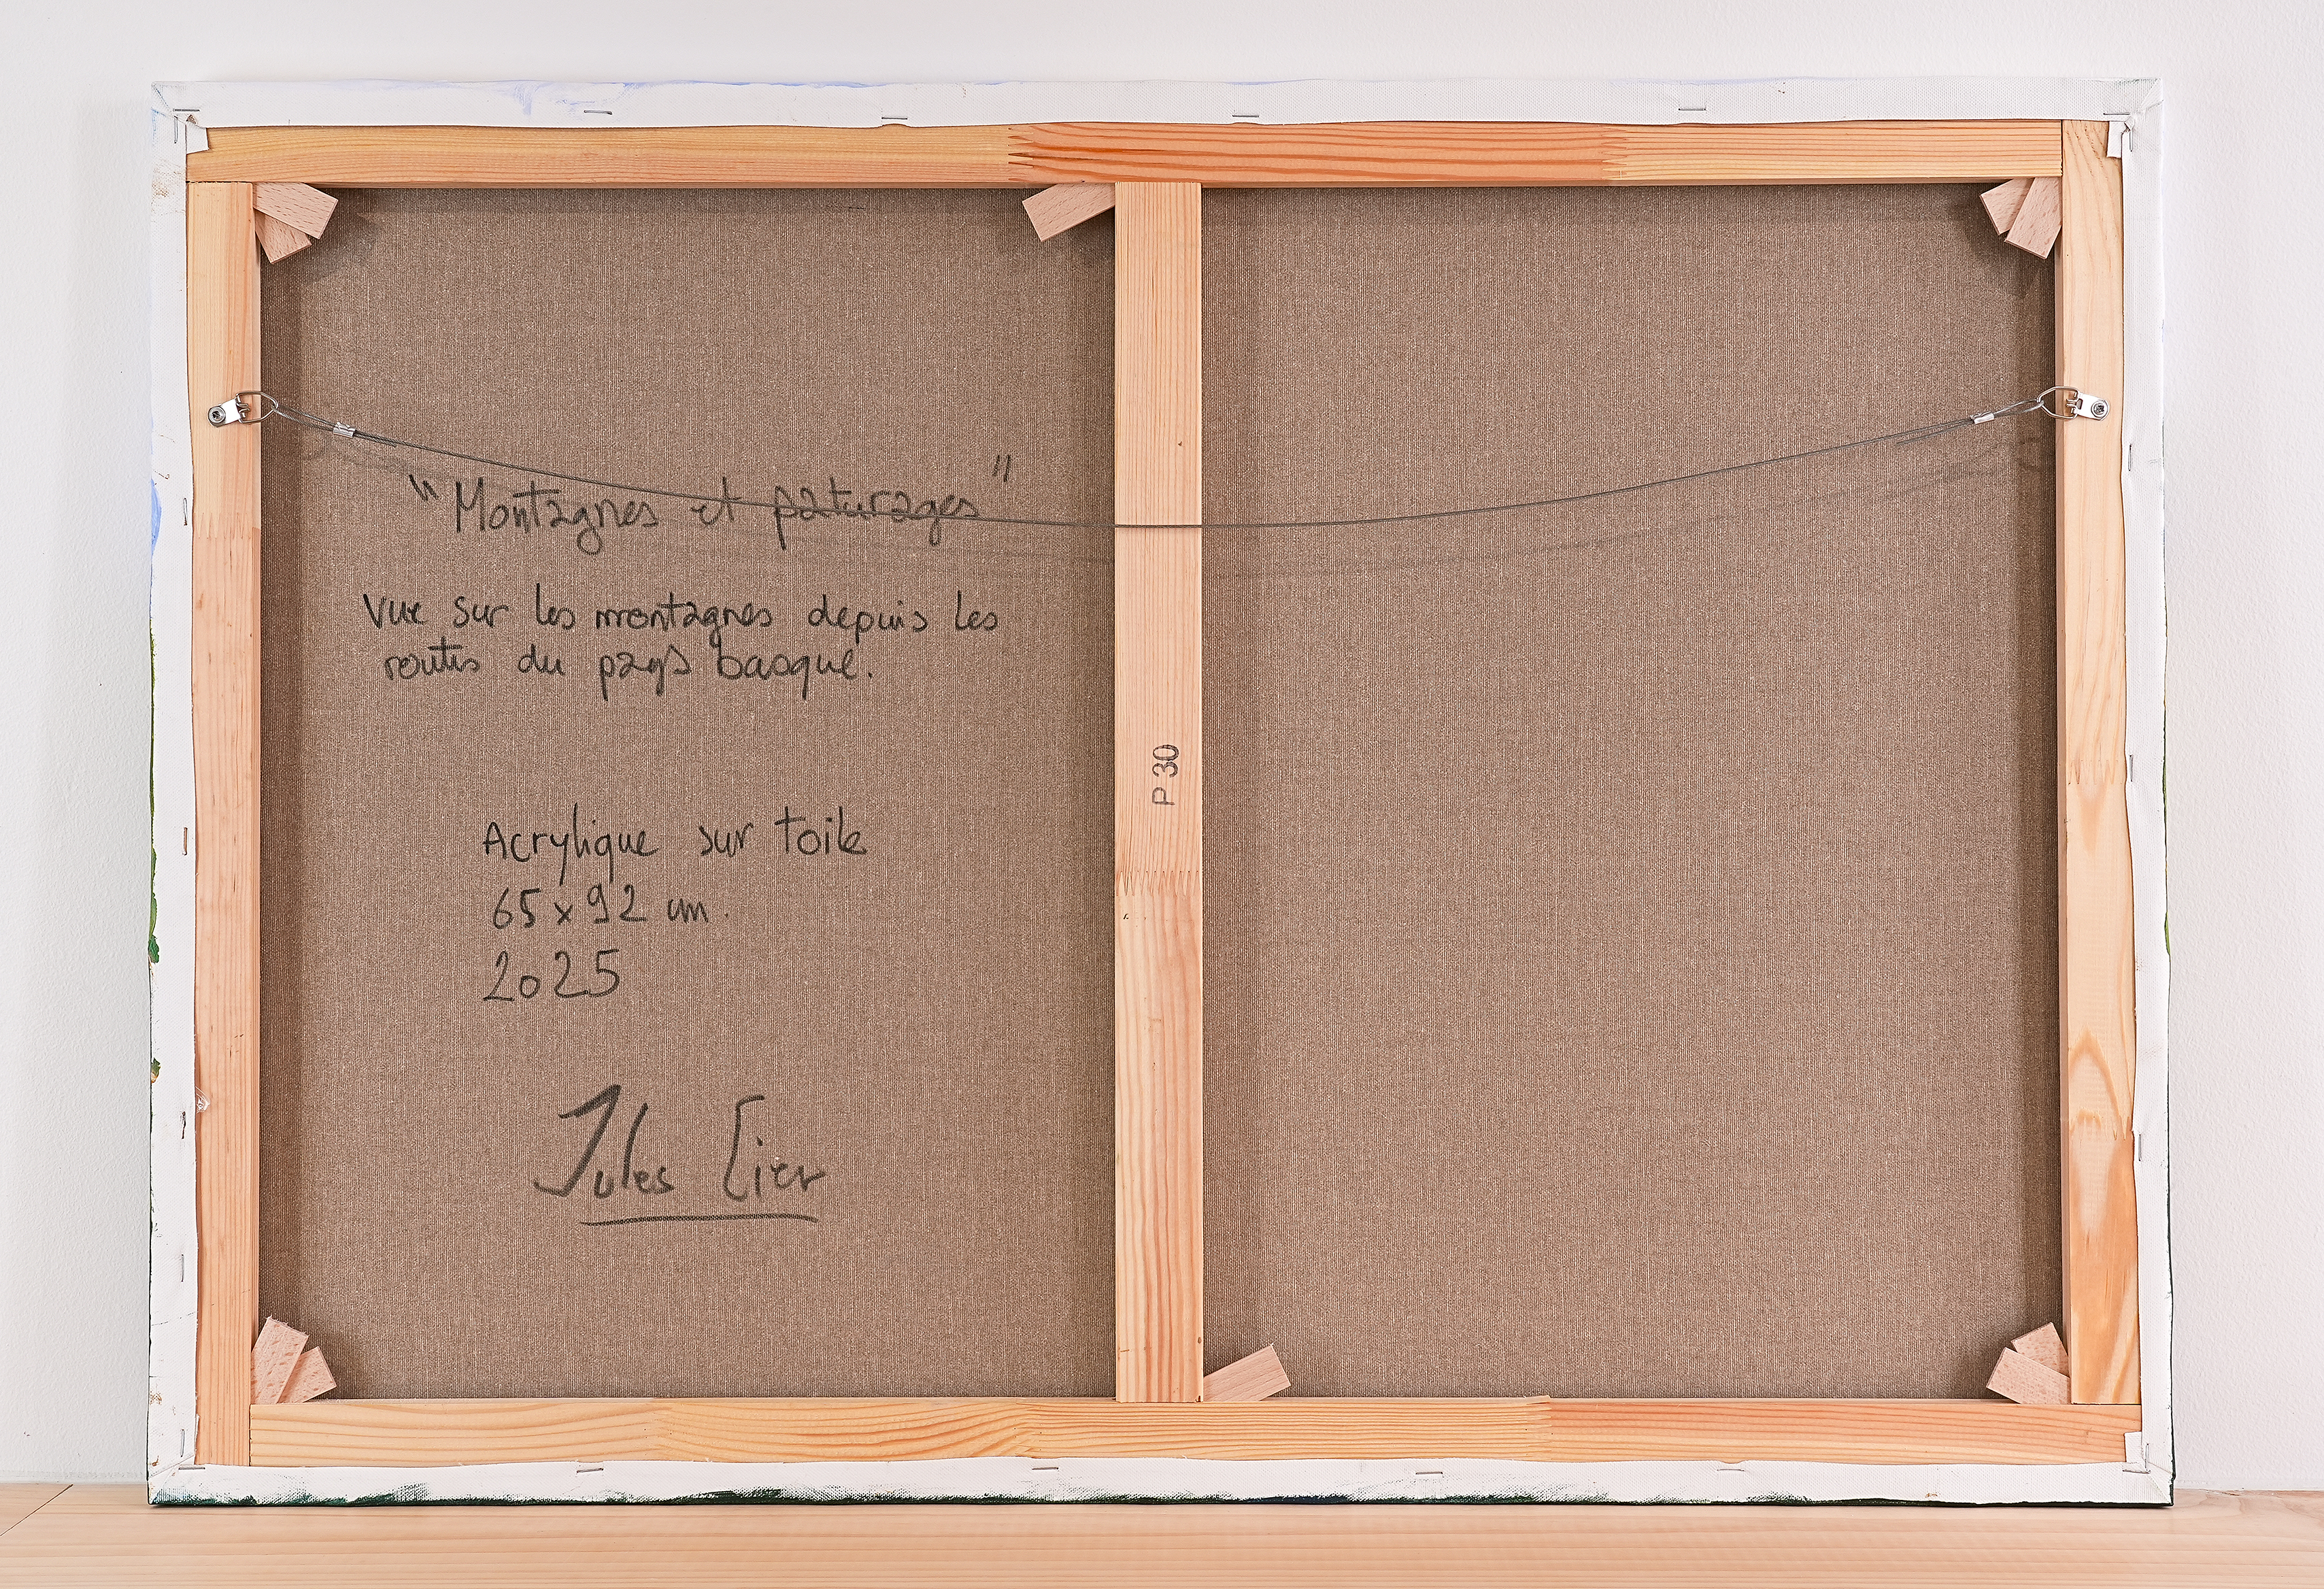 "Montagnes et paturages"
Vue sur les montagnes depuis les
routes du pays basque.
Acrylique sur toile
65 x 92 cm.
2025
Jules Cier
P 30